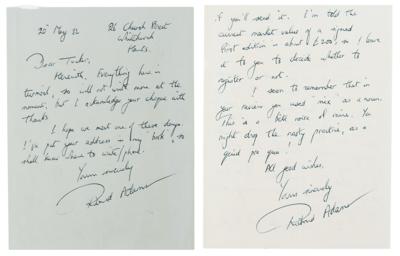 20 May 82
26 Church Street
Whitchurch
Hants.
Dear Tucker,
Herewith. Everything here in
turmoil, so will not write more at the
moment, but I acknowledge your cheque with
thanks.
I hope we meet one of these days.
I've put your address in my 'book', so
shall know where to write/phone.
Yours sincerely
Richard Adams
if you'll send it. I'm told the
current market value of a signed
first edition is about £200! so I leave
it to you to decide whether to
register or not.
I seem to remember that in
your review you used 'mix' as a noun.
This is a bête noire of mine. You
might drop the nasty practice, as a
quid pro quo!
All good wishes.
Yours sincerely
Richard Adams